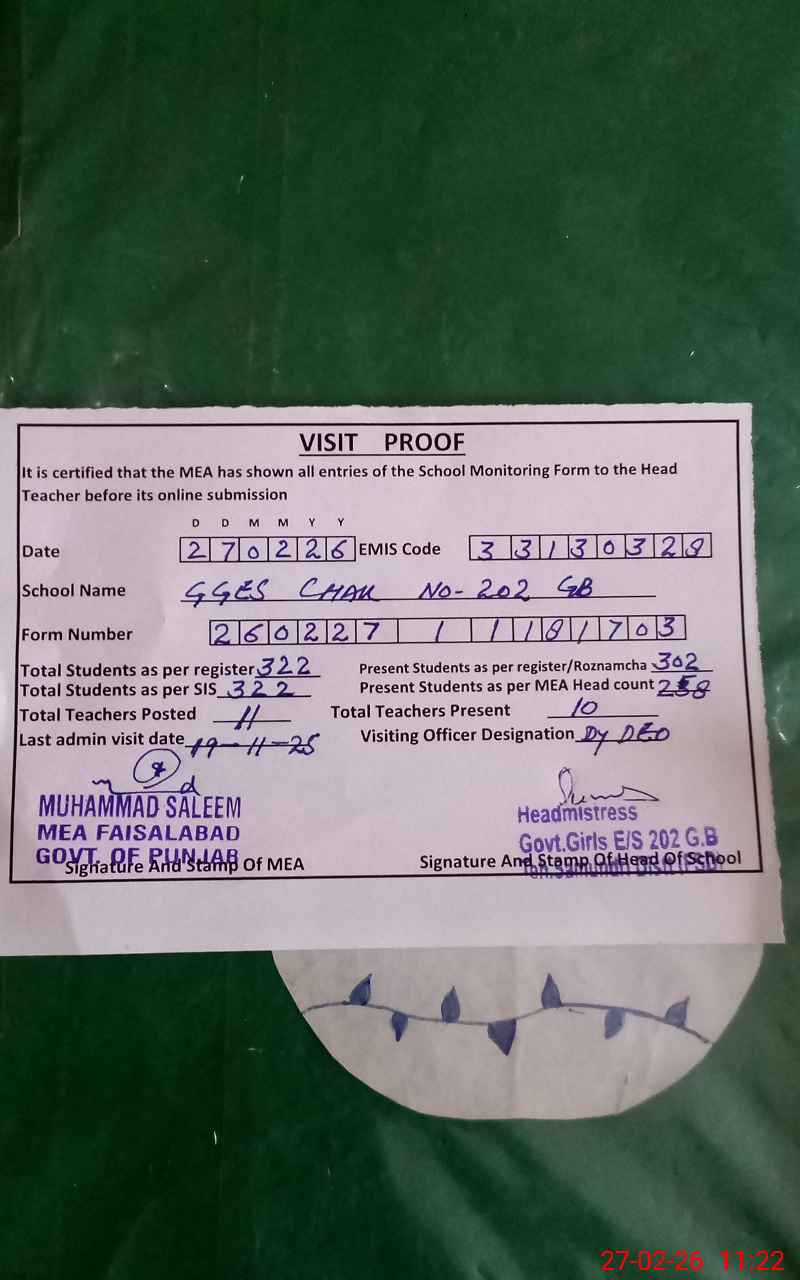 VISIT PROOF
It is certified that the MEA has shown all entries of the School Monitoring Form to the Head
Teacher before its online submission
D D M M Y Y
Date 270226 EMIS Code 33130328
School Name GGES CHAK NO-202 GB
Form Number 260227 1 1181703
Total Students as per register 322 Present Students as per register/Roznamcha 302
Total Students as per SIS 322 Present Students as per MEA Head count
Total Teachers Posted 11 Total Teachers Present 10
Last admin visit date 19-11-25 Visiting Officer Designation Dy DEO
MUHAMMAD SALEEM
MEA FAISALABAD
GOVT. OF PUNJAB
Signature And Stamp Of MEA
Headmistress
Govt.Girls E/S 202 G.B
Signature And Stamp Of Head Of School
27-02-26 11:22